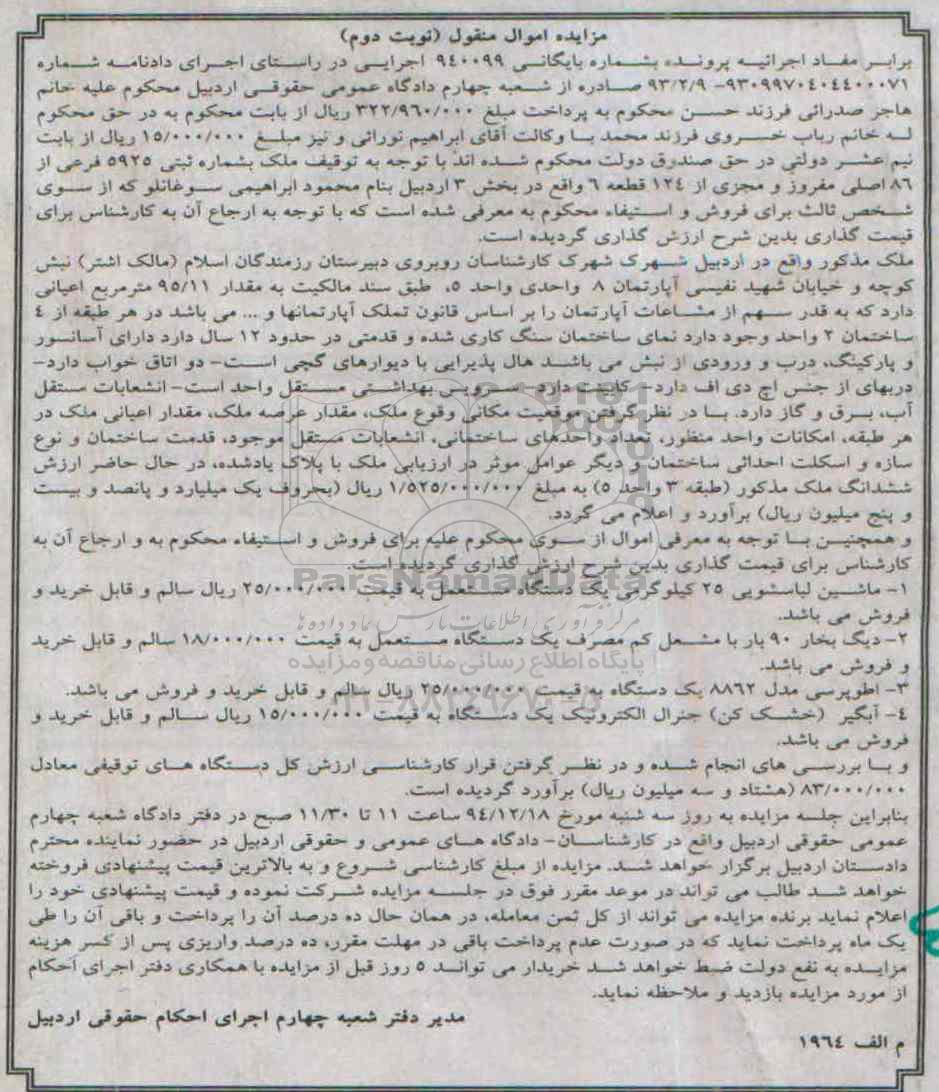 مزایده اموال منقول (نوبت دوم)
برابر مفاد اجرائیه پرونده بشماره بایگانی ۹۴۰۰۹۹ اجرایی در راستای اجرای دادنامه شماره
۹۳۰۹۹۷۰۴۰۴۴۰۰۰۷۱- ۹۳/۲/۹ صادره از شعبه چهارم دادگاه عمومی حقوقی اردبیل محکوم علیه خانم
هاجر صدرائی فرزند حسن محکوم به پرداخت مبلغ ۳۲۲/۹۶۰/۰۰۰ ریال از بابت محکوم به در حق محکوم
له خانم رباب خسروی فرزند محمد با وکالت آقای ابراهیم نورانی و نیز مبلغ ۱۵/۰۰۰/۰۰۰ ریال از بابت
نیم عشر دولتی در حق صندوق دولت محکوم شده اند با توجه به توقیف ملک بشماره ثبتی ۵۹۲۵ فرعی از
۸۶ اصلی مفروز و مجزی از ۱۲۴ قطعه ۶ واقع در بخش ۳ اردبیل بنام محمود ابراهیمی سوغانلو که از سوی
شخص ثالث برای فروش و استیفاء محکوم به معرفی شده است که با توجه به ارجاع آن به کارشناس برای
قیمت گذاری بدین شرح ارزش گذاری گردیده است.
ملک مذکور واقع در اردبیل شهرک شهرک کارشناسان روبروی دبیرستان رزمندگان اسلام (مالک اشتر) نبش
کوچه و خیابان شهید نفیسی آپارتمان ۸ واحدی واحد ۵، طبق سند مالکیت به مقدار ۹۵/۱۱ مترمربع اعیانی
دارد که به قدر سهم از مشاعات آپارتمان را بر اساس قانون تملک آپارتمانها و ... می باشد در هر طبقه از ٤
ساختمان ۲ واحد وجود دارد نمای ساختمان سنگ کاری شده و قدمتی در حدود ۱۲ سال دارد دارای آسانسور
و پارکینگ، درب و ورودی از نبش می باشد هال پذیرایی با دیوارهای گچی است- دو اتاق خواب دارد-
دربهای از جنس اچ دی اف دارد- کابینت دارد- سرویس بهداشتی مستقل واحد است- انشعابات مستقل
آب، برق و گاز دارد. با در نظر گرفتن موقعیت مکانی وقوع ملک، مقدار عرصه ملک، مقدار اعیانی ملک در
هر طبقه، امکانات واحد منظور، تعداد واحدهای ساختمانی، انشعابات مستقل موجود، قدمت ساختمان و نوع
سازه و اسکلت احداثی ساختمان و دیگر عوامل موثر در ارزیابی ملک با پلاک یادشده، در حال حاضر ارزش
ششدانگ ملک مذکور (طبقه ۳ واحد ۵) به مبلغ ۱/۵۲۵/۰۰۰/۰۰۰ ریال (بحروف یک میلیارد و پانصد و بیست
و پنج میلیون ریال) برآورد و اعلام می گردد.
و همچنین با توجه به معرفی اموال از سوی محکوم علیه برای فروش و استیفاء محکوم به و ارجاع آن به
کارشناس برای قیمت گذاری بدین شرح ارزش گذاری گردیده است.
۱- ماشین لباسشویی ۲۵ کیلوگرمی یک دستگاه مستعمل به قیمت ۲۵/۰۰۰/۰۰۰ ریال سالم و قابل خرید و
فروش می باشد.
۲- دیگ بخار ۹۰ بار با مشعل کم مصرف یک دستگاه مستعمل به قیمت ۱۸/۰۰۰/۰۰۰ سالم و قابل خرید
و فروش می باشد.
۳- اطوپرسی مدل ۸۸۶۲ یک دستگاه به قیمت ۲۵/۰۰۰/۰۰۰ ریال سالم و قابل خرید و فروش می باشد.
٤- آبگیر (خشک کن) جنرال الکترونیک یک دستگاه به قیمت ۱۵/۰۰۰/۰۰۰ ریال سالم و قابل خرید و
فروش می باشد.
و با بررسی های انجام شده و در نظر گرفتن قرار کارشناسی ارزش کل دستگاه های توقیفی معادل
۸۳/۰۰۰/۰۰۰ (هشتاد و سه میلیون ریال) برآورد گردیده است.
بنابراین جلسه مزایده به روز سه شنبه مورخ ۹٤/۱۲/۱۸ ساعت ۱۱ تا ۱۱/۳۰ صبح در دفتر دادگاه شعبه چهارم
عمومی حقوقی اردبیل واقع در کارشناسان- دادگاه های عمومی و حقوقی اردبیل در حضور نماینده محترم
دادستان اردبیل برگزار خواهد شد. مزایده از مبلغ کارشناسی شروع و به بالاترین قیمت پیشنهادی فروخته
خواهد شد طالب می تواند در موعد مقرر فوق در جلسه مزایده شرکت نموده و قیمت پیشنهادی خود را
اعلام نماید برنده مزایده می تواند از کل ثمن معامله، در همان حال ده درصد آن را پرداخت و باقی آن را طی
یک ماه پرداخت نماید که در صورت عدم پرداخت باقی در مهلت مقرر، ده درصد واریزی پس از کسر هزینه
مزایده به نفع دولت ضبط خواهد شد خریدار می تواند ۵ روز قبل از مزایده با همکاری دفتر اجرای احکام
از مورد مزایده بازدید و ملاحظه نماید.
مدیر دفتر شعبه چهارم اجرای احکام حقوقی اردبیل
م الف ۱۹٦٤
ParsNamadData
مرکز فرآوری اطلاعات پارس نماد داده ها
پایگاه اطلاع رسانی مناقصه و مزایده